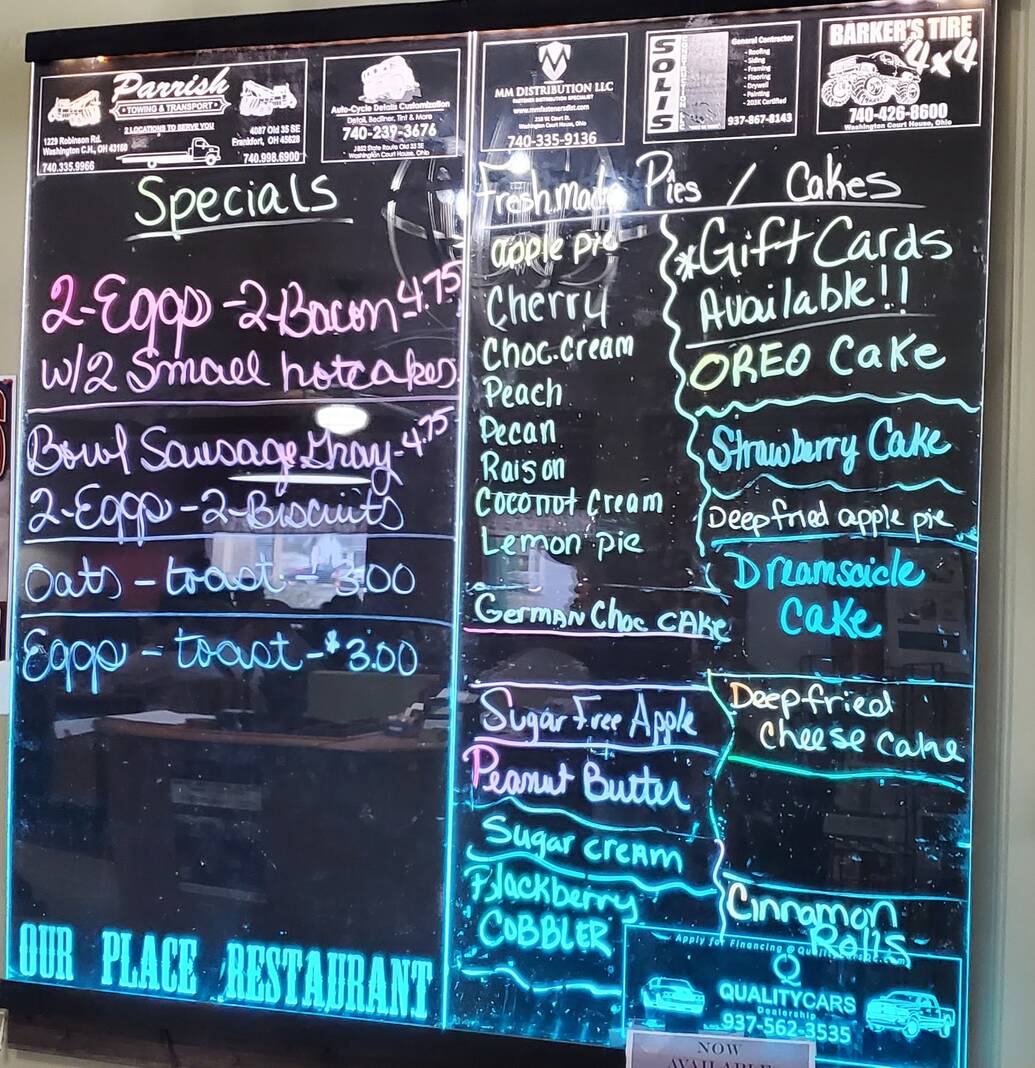 Parrish
TOWING & TRANSPORT
2 LOCATIONS TO SERVE YOU
1229 Robinson Rd.
Washington C.H., OH 43160
740.335.9966
4087 Old 35 SE
Frankfort, OH 45628
740.998.6900
Auto-Cycle Details Customization
Detail, Bedliner, Tint & More
740-239-3676
Washington Court House, Ohio
MM DISTRIBUTION LLC
FASTENER DISTRIBUTION SPECIALIST
www.mmfastenersdist.com
Washington Court House, Ohio
740-335-9136
SOLIS
General Contractor
- Roofing
- Siding
- Framing
- Flooring
- Drywall
- Painting
- 203K Certified
937-867-8143
BARKER'S TIRE
4x4
740-426-8600
Washington Court House, Ohio
Specials
2-Eggs -2-Bacon-4.75
w/2 Small hotcakes
Bowl Sausage Gravy-4.75
2-Eggs -2-Biscuits
Oats - toast - 3.00
Eggs - toast-$3.00
OUR PLACE RESTAURANT
Freshmade Pies / Cakes
apple pie
Cherry
Choc.Cream
Peach
Pecan
Raison
Coconut Cream
Lemon pie
German Choc CAKe
Sugar Free Apple
Peanut Butter
Sugar cream
Blackberry
COBBLER
*Gift Cards
Available!!
OREO Cake
Strawberry Cake
Deepfried apple pie
Dreamscicle
Cake
Deepfried
Cheese Cake
Cinnamon
Rolls
QUALITYCARS
Dealership
937-562-3535
NOW
AVAILABLE